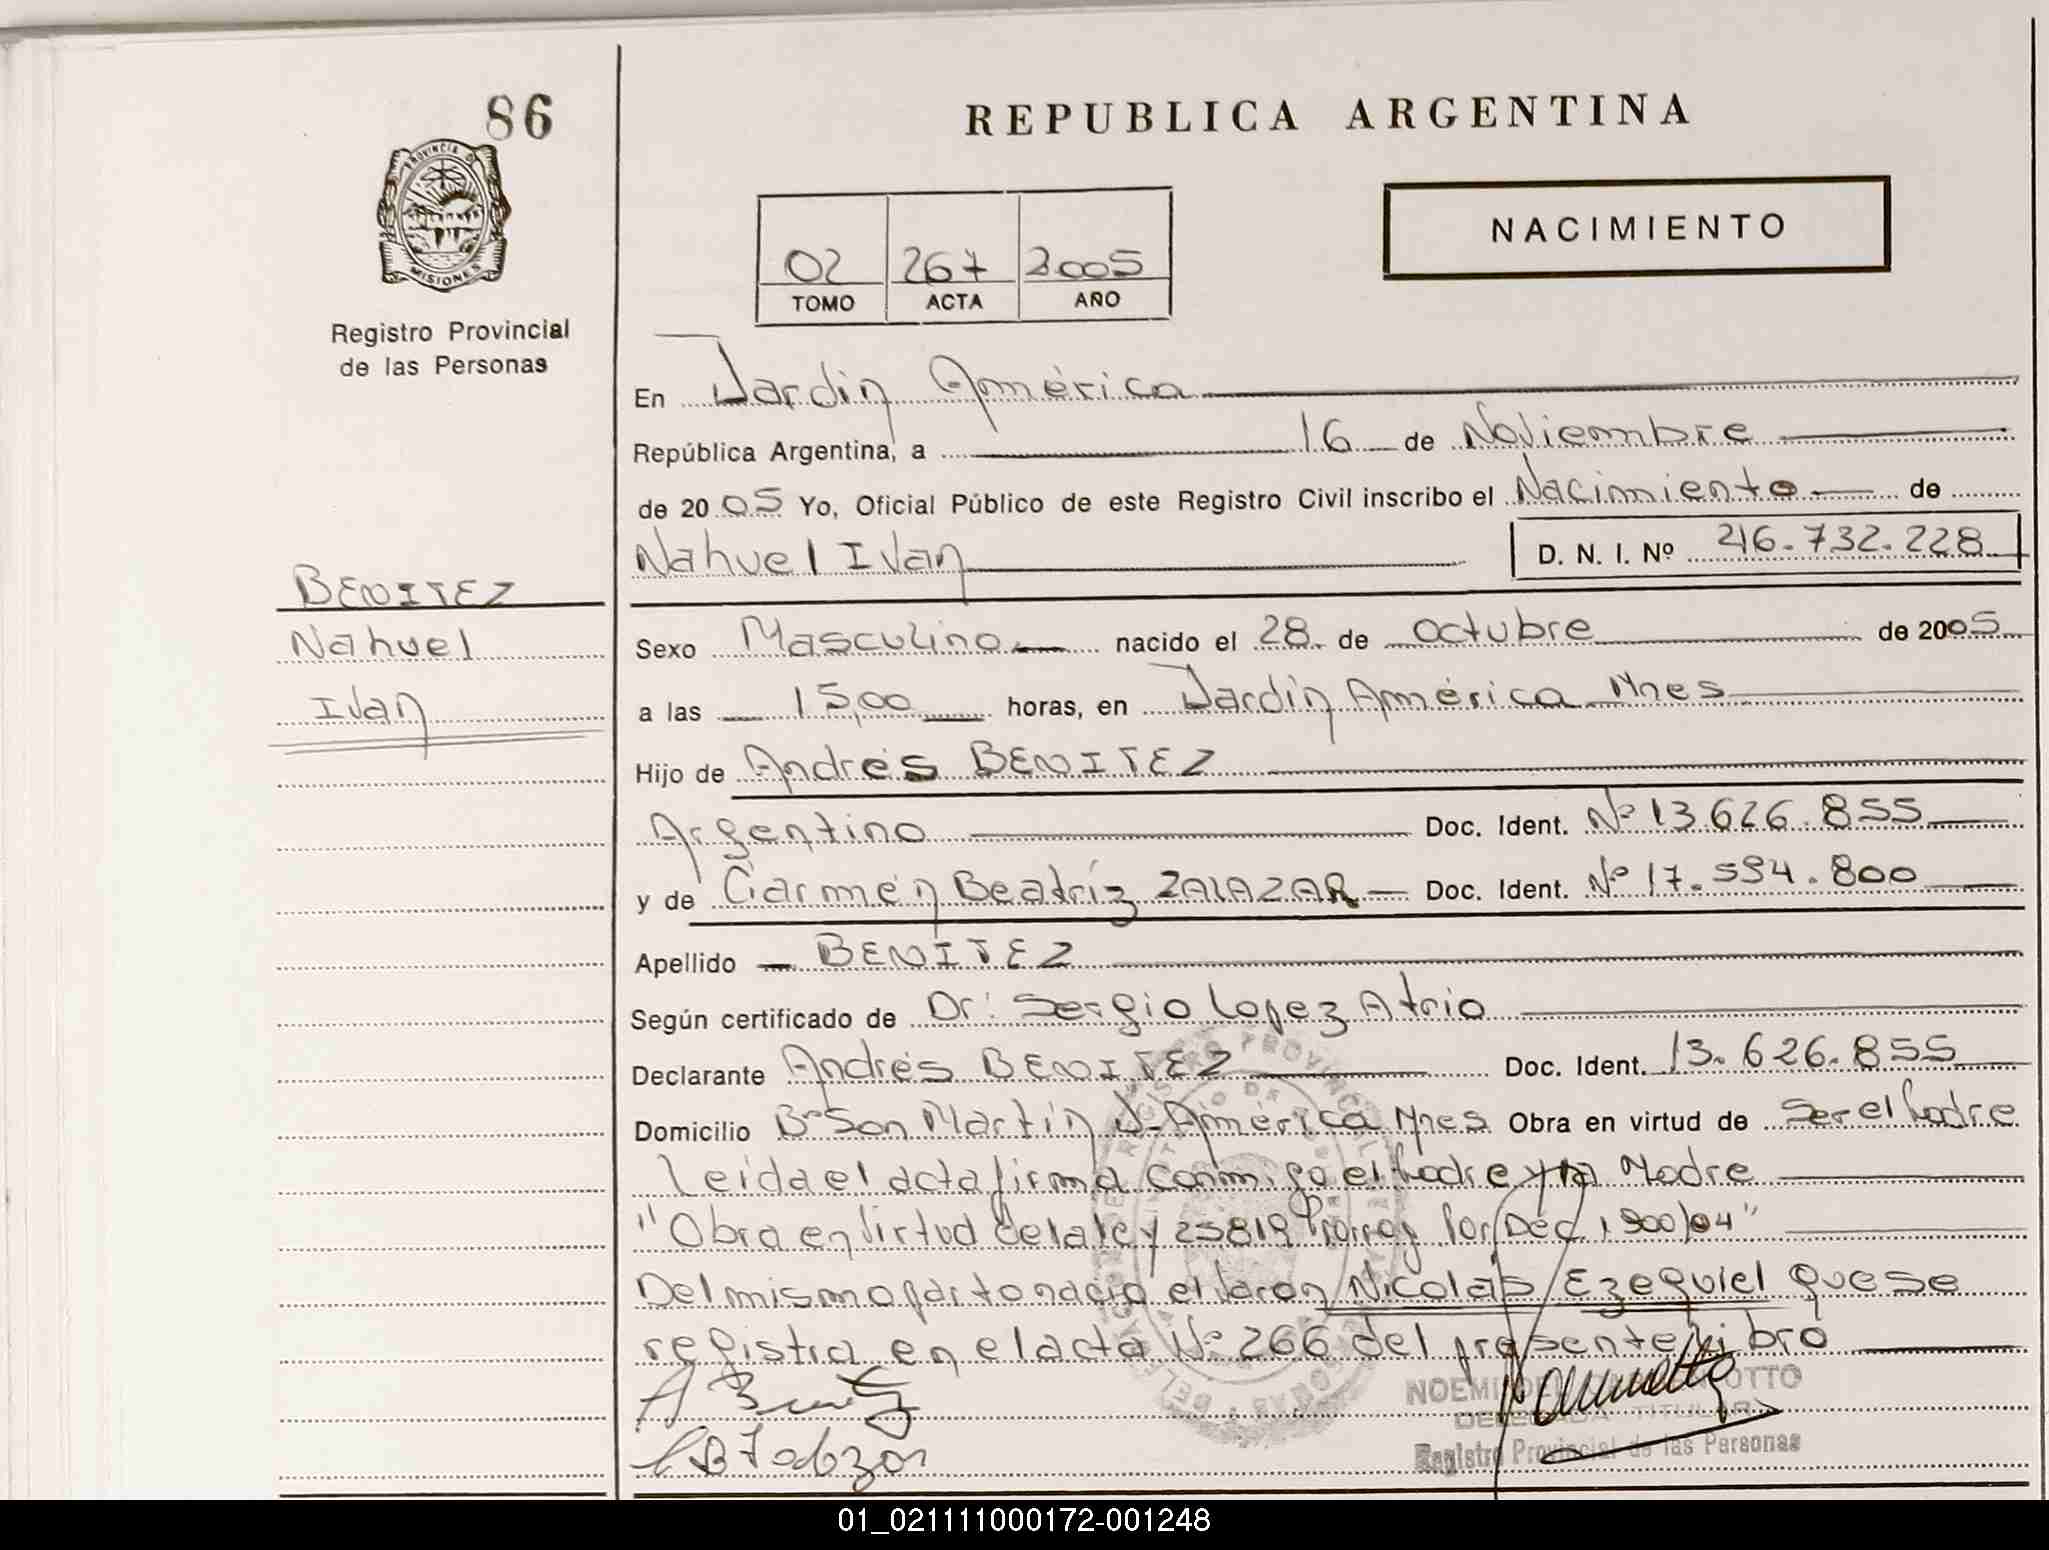 86
PROVINCIA D
MISIONES
Registro Provincial
de las Personas
REPUBLICA ARGENTINA
NACIMIENTO
02 267 2005
TOMO ACTA AÑO
En Jardin América
República Argentina, a 16 de Noviembre
de 2005 Yo, Oficial Público de este Registro Civil inscribo el Nacimiento de
Nahuel Ivan D. N. I. Nº 46.732.228
BENITEZ
Nahuel
Ivan
Sexo Masculino nacido el 28 de octubre de 2005
a las 15,00 horas, en Jardin América Mnes
Hijo de Andrés BENITEZ
Argentino Doc. Ident. Nº 13.626.855
y de Carmen Beatríz ZALAZAR Doc. Ident. Nº 17.594.800
Apellido BENITEZ
Según certificado de Dr: Sergio Lopez Atrio
Declarante Andrés BENITEZ Doc. Ident. 13.626.855
Domicilio Bº San Martin J. América Mnes Obra en virtud de Ser el Padre
Leida el acta firma conmigo el Padre y la Madre
"Obra en virtud de la ley 25819 Prorrog Por Dec 1.900/04"
Del mismo parto nació el varon Nicolás Ezequiel que se
registra en el acta Nº 266 del presente libro
NOEMI OTTO
DELEGADA TITULAR
Registro Provincial de las Personas
01_021111000172-001248